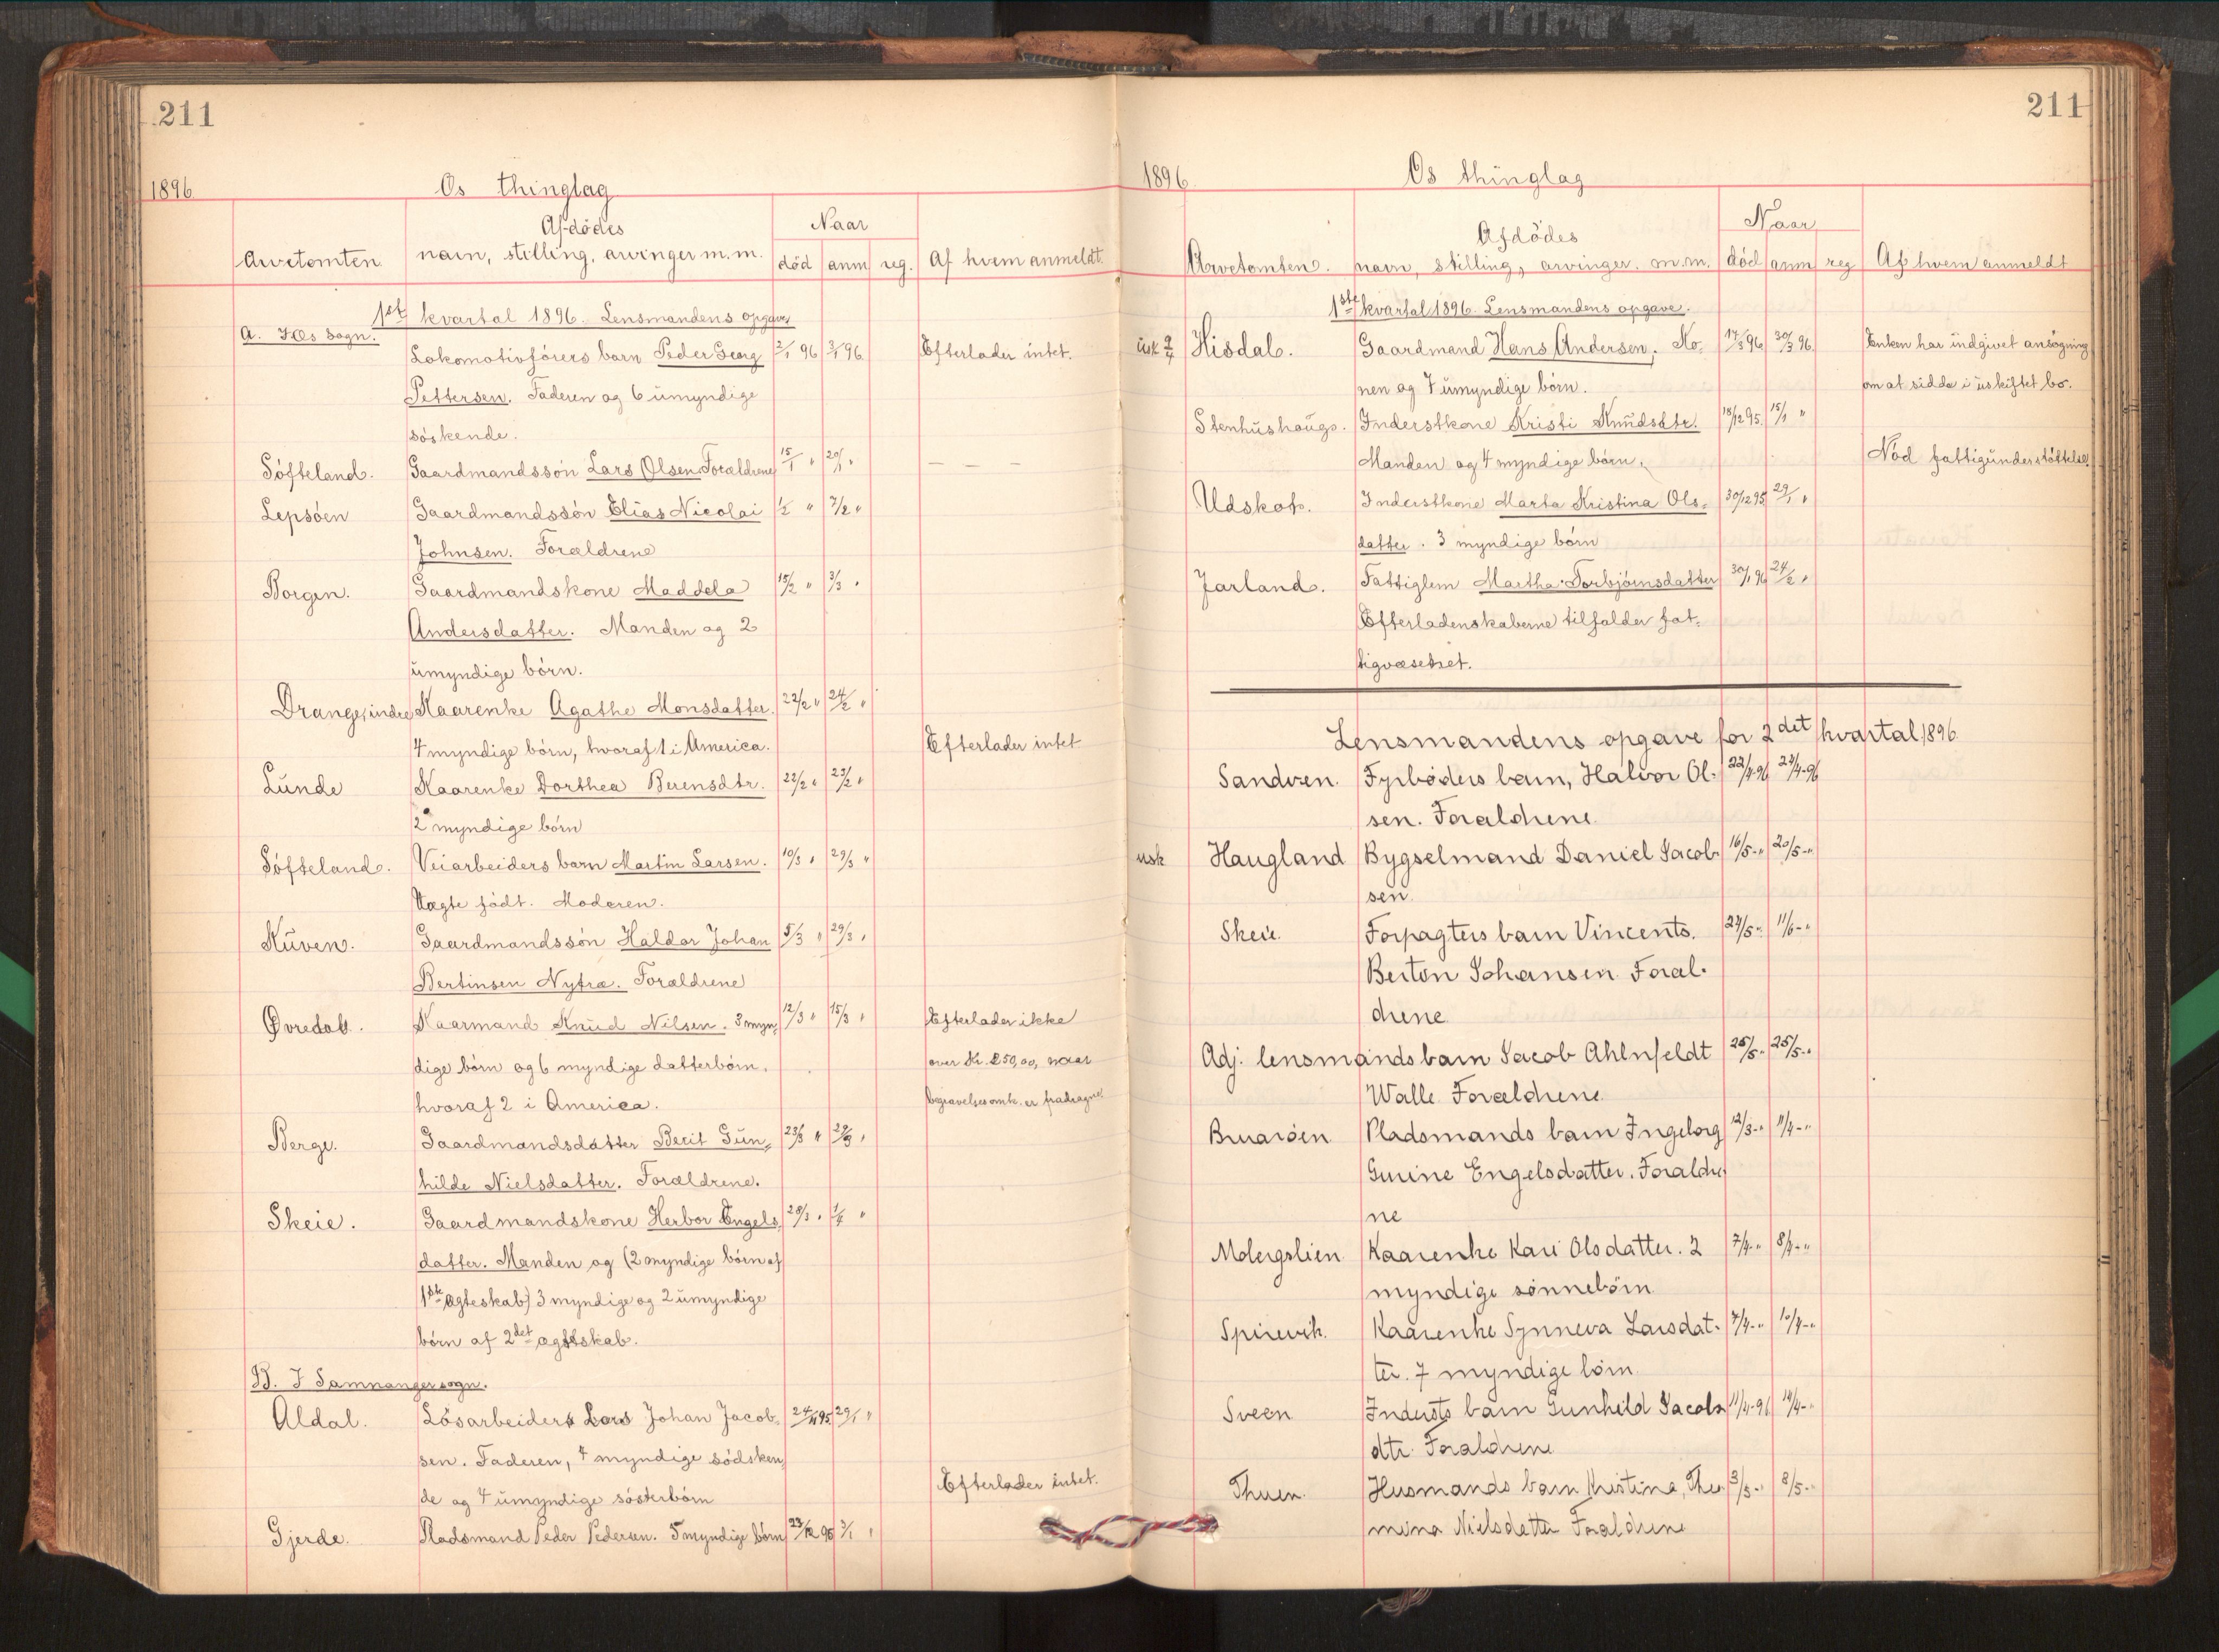 211
1896
Os thinglag
Arvetomten
Afdödes
navn, stilling, arvinger m. m.
Naar
död anm reg.
Af hvem anmeldt.
1ste kvartal 1896. Lensmandens opgave
A. I Os sogn.
Lokomotivförers barn Peder Georg 2/1 96 3/1 96. Efterlader intet.
Pettersen. Faderen og 6 umyndige
söskende.
Söfteland. Gaardmandssön Lars Olsen. Forældrene 15/1 " 20/1 " — — —
Lepsöen Gaardmandssön Elias Nicolai 1/2 " 7/2 "
Johnsen. Forældrene
Borgen. Gaardmandskone Maddela 15/2 " 3/3 "
Andersdatter. Manden og 2
umyndige börn.
Drange, indre Kaarenke Agathe Monsdatter. 22/2 " 24/2 "
4 myndige börn, hvoraf 1 i America. Efterlader intet
Lunde Kaarenke Dorthea Berensdtr. 22/2 " 29/2 "
2 myndige börn
Söfteland. Veiarbeiders barn Martin Larsen. 10/3 " 29/3 "
Uægte födt. Moderen.
Kuven. Gaardmandssön Haldor Johan 5/3 " 29/3 "
Bertinsen Nytræ. Forældrene
Øvredal. Kaarmand Knud Nilsen. 3 myn- 12/3 " 15/3 " Efterlader ikke
dige börn og 6 myndige datterbörn, over Kr. 250,00, naar
hvoraf 2 i America. begravelsesomk. er fradragne.
Berge. Gaardmandsdatter Berit Gun- 23/3 " 29/3 "
hilde Nielsdatter. Forældrene.
Skeie. Gaardmandskone Herbor Engels- 28/3 " 1/4 "
datter. Manden og (2 myndige börn af
1ste ægteskab) 3 myndige og 2 umyndige
börn af 2det ægteskab.
B. I Samnanger sogn.
Aldal. Lösarbeider Lars Johan Jacob- 24/11 95. 29/1 "
sen. Faderen, 4 myndige södsken-
de og 4 umyndige sösterbörn Efterlader intet.
Gjerde. Pladsmand Peder Pedersen. 5 myndige börn 23/12 95 3/1 "
211
1896
Os thinglag
Arvetomten.
Afdödes
navn, stilling, arvinger. m.m.
Naar
död anm reg
Af hvem anmeldt
1ste kvartal 1896. Lensmandens opgave.
usk Hisdal. Gaardmand Hans Andersen. Ko- 17/3 96 30/3 96. Enken har indgivet ansögning
nen og 7 umyndige börn. om at sidde i uskiftet bo.
Stenhushaug. Inderstkone Kristi Knudsdtr. 18/12 95. 15/1 "
Manden og 4 myndige börn. Nöd fattigunderstöttelse
Udskot. Inderstkone Marta Kristina Ols- 30/12 95 29/1 "
datter. 3 myndige börn
Jarland. Fattiglem Martha Torbjörnsdatter 30/1 96 24/2 "
Efterladenskaberne tilfalder fat-
tigvæsenet.
Lensmandens opgave for 2det kvartal 1896
Sandven. Fyrböders barn, Halvor Ol- 22/4-96 23/4-96
sen. Forældrene
usk Haugland Bygselmand Daniel Jacob- 16/5-" 20/5-"
sen.
Skeie. Forpagters barn Vincents. 24/5-" 11/6-"
Berton Johansen Foræl-
drene
Adj. lensmands barn Jacob Ahlnfeldt 25/5-" 25/5-"
Walle Forældrene
Bruaröen Pladsmands barn Ingeborg 12/3-" 11/4-"
Gurine Engelsdatter. Forældre
ne
Molergslien Kaarenke Kari Olsdatter. 2 7/4-" 8/4-"
myndige sönnebörn
Spirevik. Kaarenke Synneva Larsdat- 7/4-" 10/4-"
ter. 7 myndige börn.
Sveen Indersts barn Gunhild Jacobs 11/4-96 14/4-"
dtr. Forældrene
Thuen. Husmands barn Kristina, Theo 3/5-" 8/5-"
mina Nielsdatter Forældrene